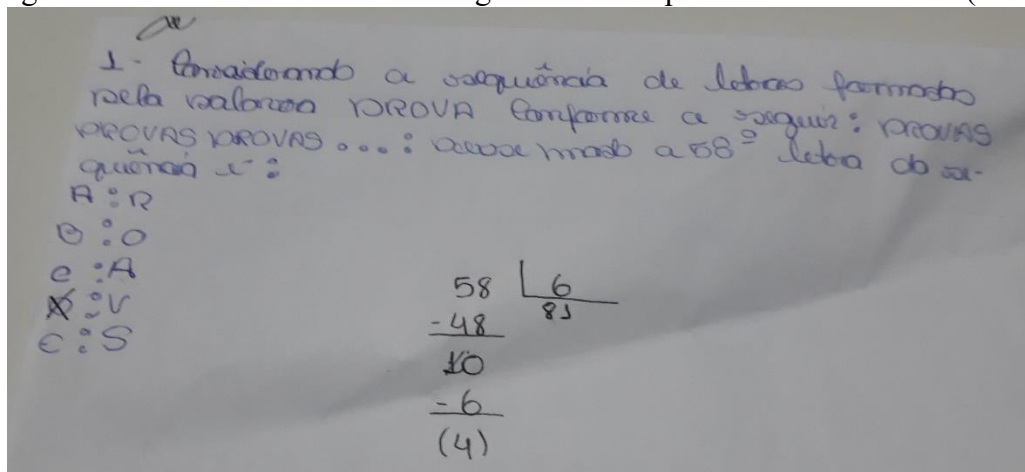 1- Considerando a sequência de letras formadas
pela palavra PROVA conforme a seguir: PROVAS
PROVAS PROVAS ...: desse modo a 58º letra da se-
quência é:
A: R
B: O
C: A
D: V
E: S
58 6
-48 81
10
-6
(4)